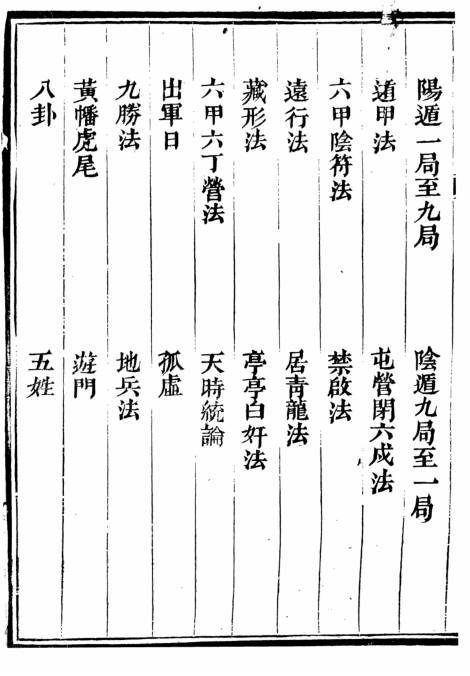 陽遁一局至九局　陰遁九局至一局
遁甲法　屯營閉六戊法
六甲陰符法　禁啟法
遠行法　居靑龍法
藏形法　亭亭白奸法
六甲六丁營法　天時統論
出軍日　孤虛
九勝法　地兵法
黃幡虎尾　遊門
八卦　五姓